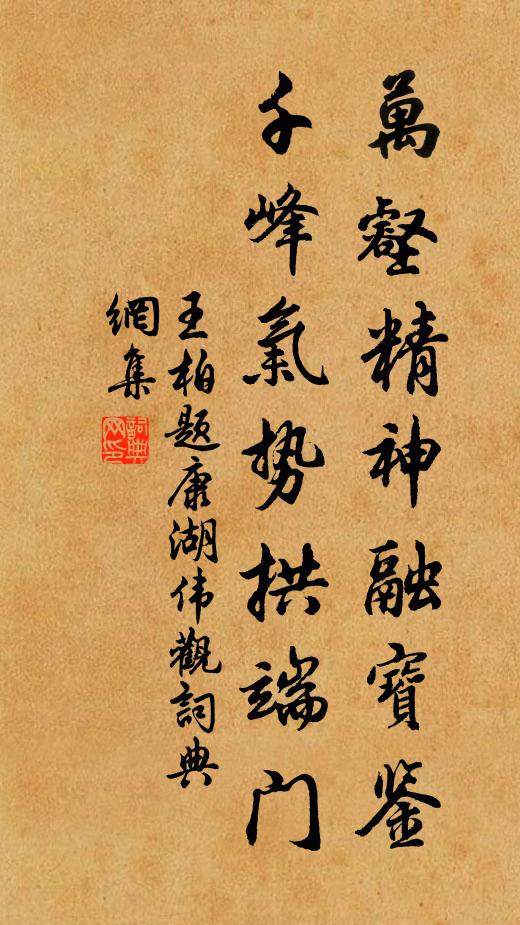 萬壑精神融寶鉴
千峰氣势拱端门
王柏题康湖伟觀詞典
網集
詞典
网印